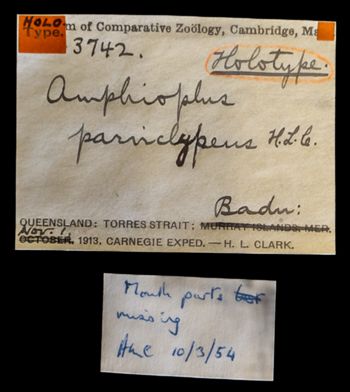 HOLO
Type. m of Comparative Zoölogy, Cambridge, Ma
3742.
Holotype.
Amphioplus
parviclypeus H.L.C.
Badu:
QUEENSLAND: TORRES STRAIT; MURRAY ISLANDS, MER.
Nov. 1,
OCTOBER, 1913. CARNEGIE EXPED. — H. L. CLARK.
Mouth parts
missing
AMC 10/3/54